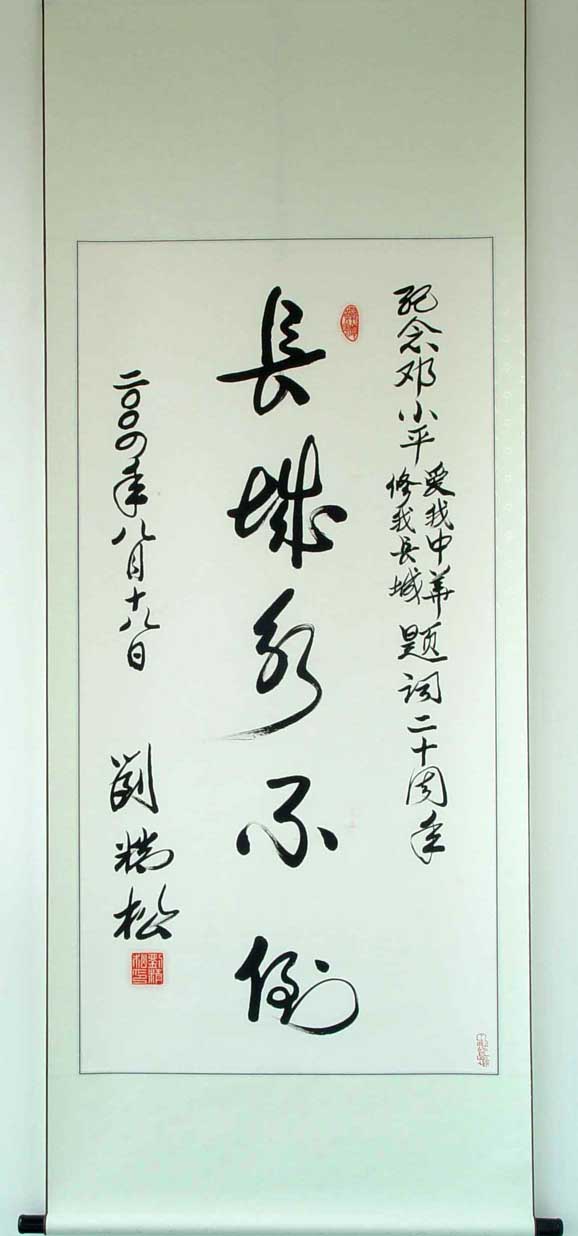 纪念邓小平爱我中华修我长城题词二十周年
長城永不倒
二〇〇四年八月十八日
劉精松